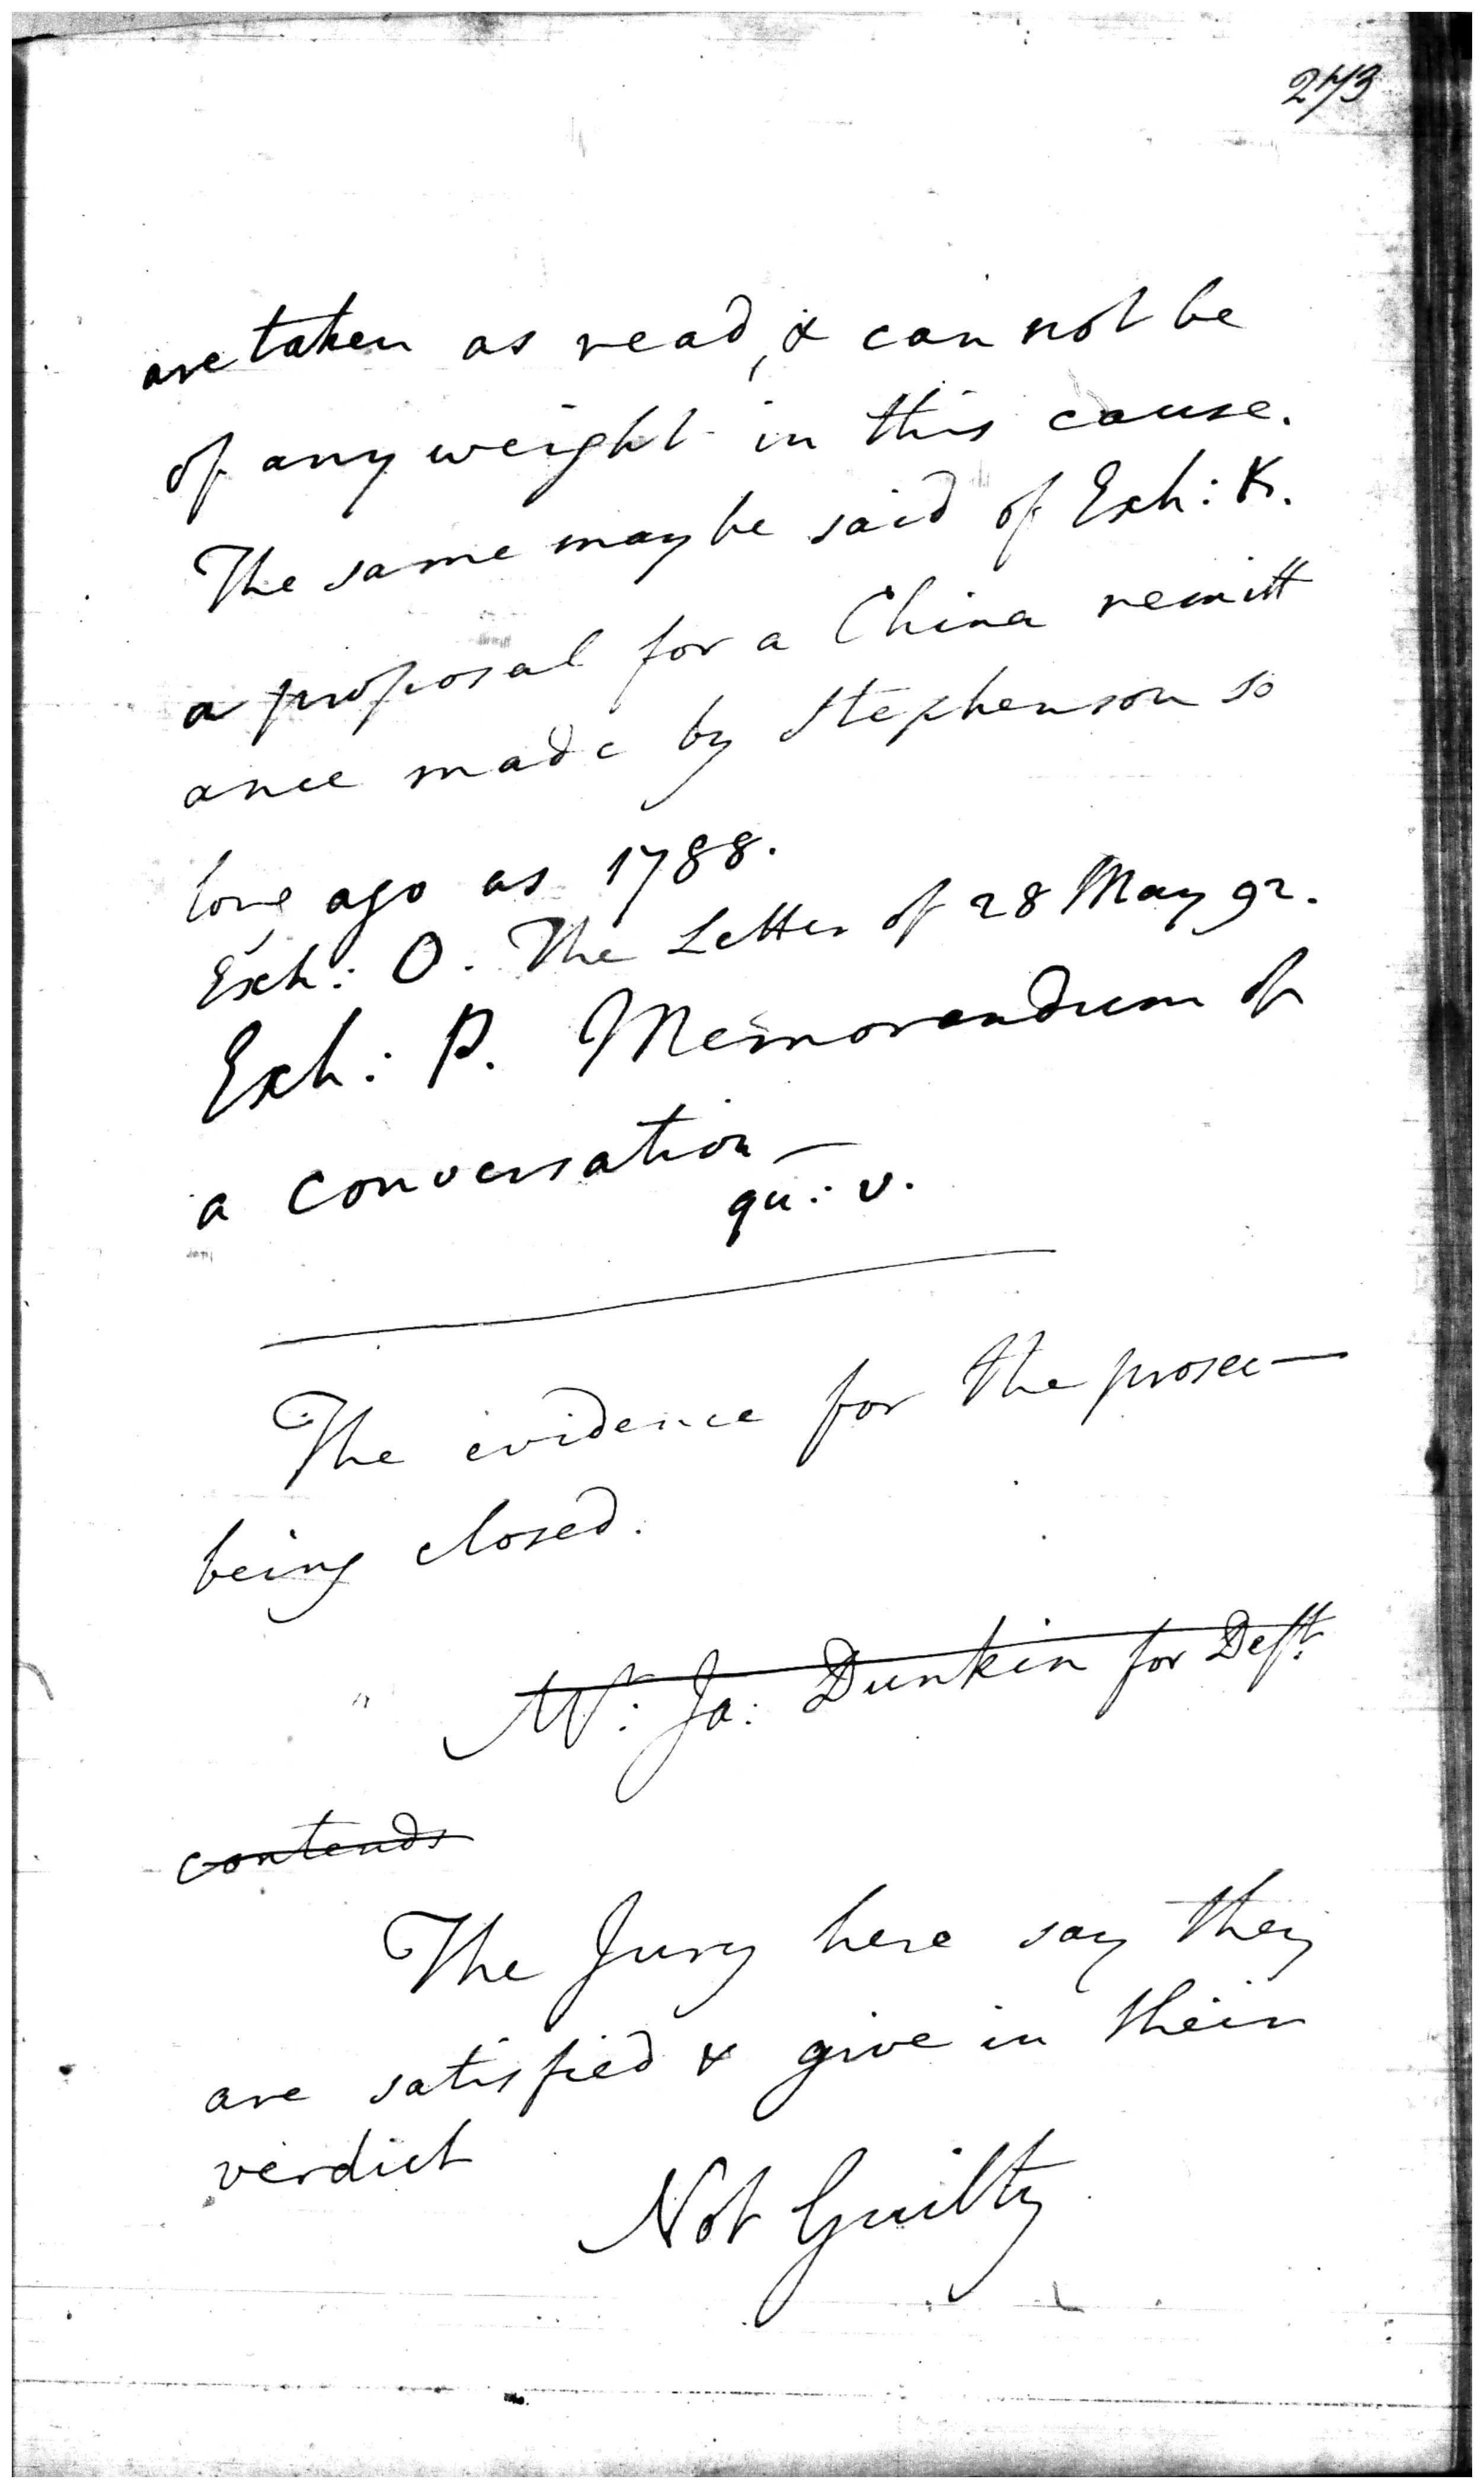 273
are taken as read, & can not be
of any weight in this cause.
The same may be said of Exh: K.
a proposal for a China remitt
ance made by Stephenson so
long ago as 1788.
Exh: O. The Letter of 28 May 92.
Exh: P. Memorandum of
a conversation—
qu: v.
The evidence for the prosec—
being closed.
Mr: Ja: Dunkin for Deft:
contends
The Jury here say they
are satisfied & give in their
verdict
Not Guilty